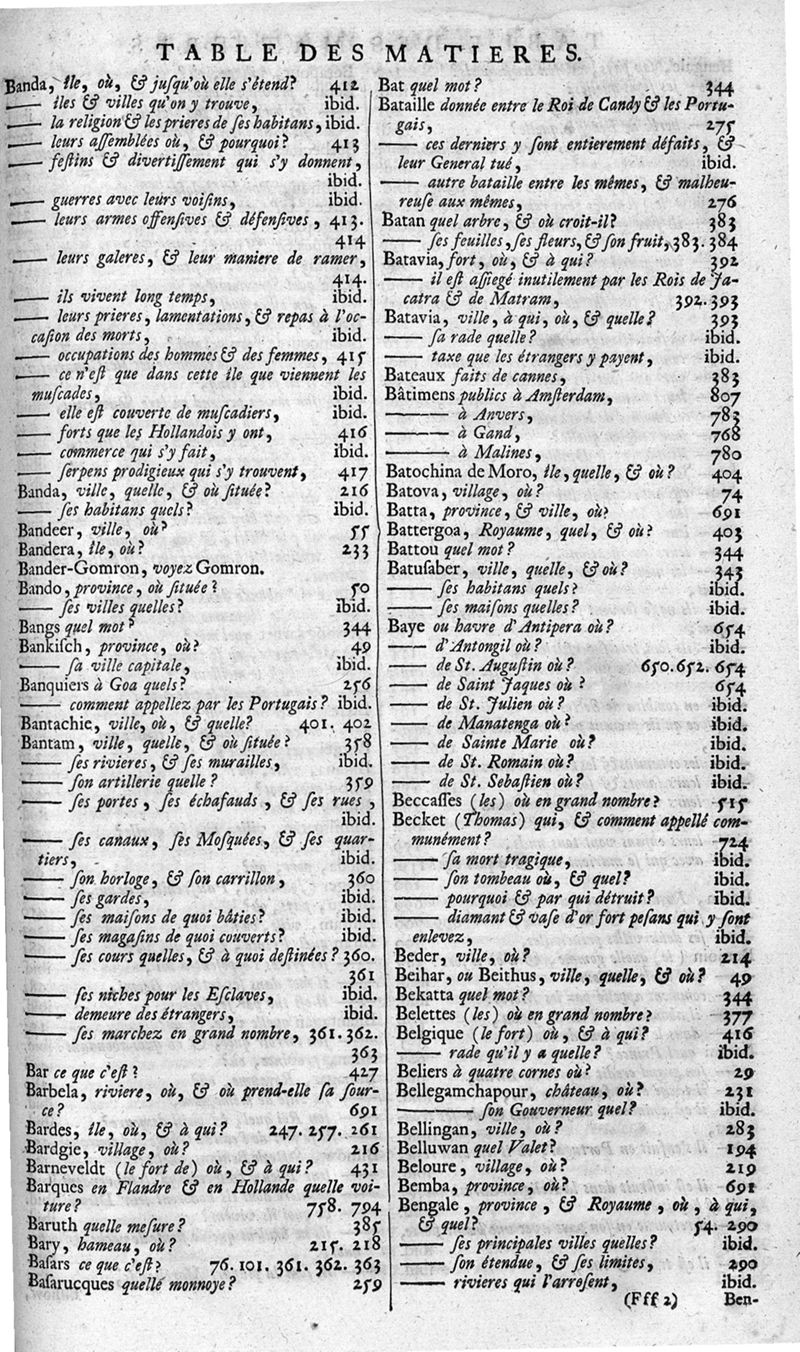 TABLE DES MATIERES.
Banda, île, où, & juſqu'où elle s'étend? 412
—— îles & villes qu'on y trouve, ibid.
—— la religion & les prieres de ſes habitans, ibid.
—— leurs aſſemblées où, & pourquoi? 413
—— feſtins & divertiſſement qui s'y donnent,
ibid.
—— guerres avec leurs voiſins, ibid.
—— leurs armes offenſives & défenſives, 413.
414
—— leurs galeres, & leur maniere de ramer,
414.
—— ils vivent long temps, ibid.
—— leurs prieres, lamentations, & repas à l'oc-
caſion des morts, ibid.
—— occupations des hommes & des femmes, 415
—— ce n'eſt que dans cette île que viennent les
muſcades, ibid.
—— elle eſt couverte de muſcadiers, ibid.
—— forts que les Hollandois y ont, 416
—— commerce qui s'y fait, ibid.
—— ſerpens prodigieux qui s'y trouvent, 417
Banda, ville, quelle, & où ſituée? 216
—— ſes habitans quels? ibid.
Bandeer, ville, où? 55
Bandera, île, où? 233
Bander-Gomron, voyez Gomron.
Bando, province, où ſituée? 50
—— ſes villes quelles? ibid.
Bangs quel mot? 344
Bankiſch, province, où? 49
—— ſa ville capitale, ibid.
Banquiers à Goa quels? 256
—— comment appellez par les Portugais? ibid.
Bantachie, ville, où, & quelle? 401. 402
Bantam, ville, quelle, & où ſituée? 358
—— ſes rivieres, & ſes murailles, ibid.
—— ſon artillerie quelle? 359
—— ſes portes, ſes échafauds, & ſes rues,
ibid.
—— ſes canaux, ſes Moſquées, & ſes quar-
tiers, ibid.
—— ſon horloge, & ſon carrillon, 360
—— ſes gardes, ibid.
—— ſes maiſons de quoi bâties? ibid.
—— ſes magaſins de quoi couverts? ibid.
—— ſes cours quelles, & à quoi deſtinées? 360.
361
—— ſes niches pour les Eſclaves, ibid.
—— demeure des étrangers, ibid.
—— ſes marchez en grand nombre, 361. 362.
363
Bar ce que c'eſt? 427
Barbela, riviere, où, & où prend-elle ſa ſour-
ce? 691
Bardes, île, où, & à qui? 247. 257. 261
Bardgie, village, où? 216
Barneveldt (le fort de) où, & à qui? 431
Barques en Flandre & en Hollande quelle voi-
ture? 758. 794
Baruth quelle meſure? 385
Bary, hameau, où? 215. 218
Baſars ce que c'eſt? 76. 101. 361. 362. 363
Baſarucques quelle monnoye? 259
Bat quel mot? 344
Bataille donnée entre le Roi de Candy & les Portu-
gais, 275
—— ces derniers y ſont entierement défaits, &
leur General tué, ibid.
—— autre bataille entre les mêmes, & malheu-
reuſe aux mêmes, 276
Batan quel arbre, & où croit-il? 383
—— ſes feuilles, ſes fleurs, & ſon fruit, 383. 384
Batavia, fort, où, & à qui? 392
—— il eſt aſſiegé inutilement par les Rois de Ja-
catra & de Matram, 392. 393
Batavia, ville, à qui, où, & quelle? 393
—— ſa rade quelle? ibid.
—— taxe que les étrangers y payent, ibid.
Bateaux faits de cannes, 383
Bâtimens publics à Amſterdam, 807
—— à Anvers, 783
—— à Gand, 768
—— à Malines, 780
Batochina de Moro, île, quelle, & où? 404
Batova, village, où? 74
Batta, province, & ville, où? 691
Battergoa, Royaume, quel, & où? 403
Battou quel mot? 344
Batuſaber, ville, quelle, & où? 343
—— ſes habitans quels? ibid.
—— ſes maiſons quelles? ibid.
Baye ou havre d'Antipera où? 654
—— d'Antongil où? ibid.
—— de St. Auguſtin où? 650. 652. 654
—— de Saint Jaques où? 654
—— de St. Julien où? ibid.
—— de Manatenga où? ibid.
—— de Sainte Marie où? ibid.
—— de St. Romain où? ibid.
—— de St. Sebaſtien où? ibid.
Beccaſſes (les) où en grand nombre? 515
Becket (Thomas) qui, & comment appellé com-
munément? 724
—— ſa mort tragique, ibid.
—— ſon tombeau où, & quel? ibid.
—— pourquoi & par qui détruit? ibid.
—— diamant & vaſe d'or fort peſans qui y ſont
enlevez, ibid.
Beder, ville, où? 214
Beihar, ou Beithus, ville, quelle, & où? 49
Bekatta quel mot? 344
Belettes (les) où en grand nombre? 377
Belgique (le fort) où, & à qui? 416
—— rade qu'il y a quelle? ibid.
Beliers à quatre cornes où? 29
Bellegamchapour, château, où? 231
—— ſon Gouverneur quel? ibid.
Bellingan, ville, où? 283
Belluwan quel Valet? 194
Beloure, village, où? 219
Bemba, province, où? 691
Bengale, province, & Royaume, où, à qui,
& quel? 54. 290
—— ſes principales villes quelles? ibid.
—— ſon étendue, & ſes limites, 290
—— rivieres qui l'arroſent, ibid.
(Fff 2) Ben-